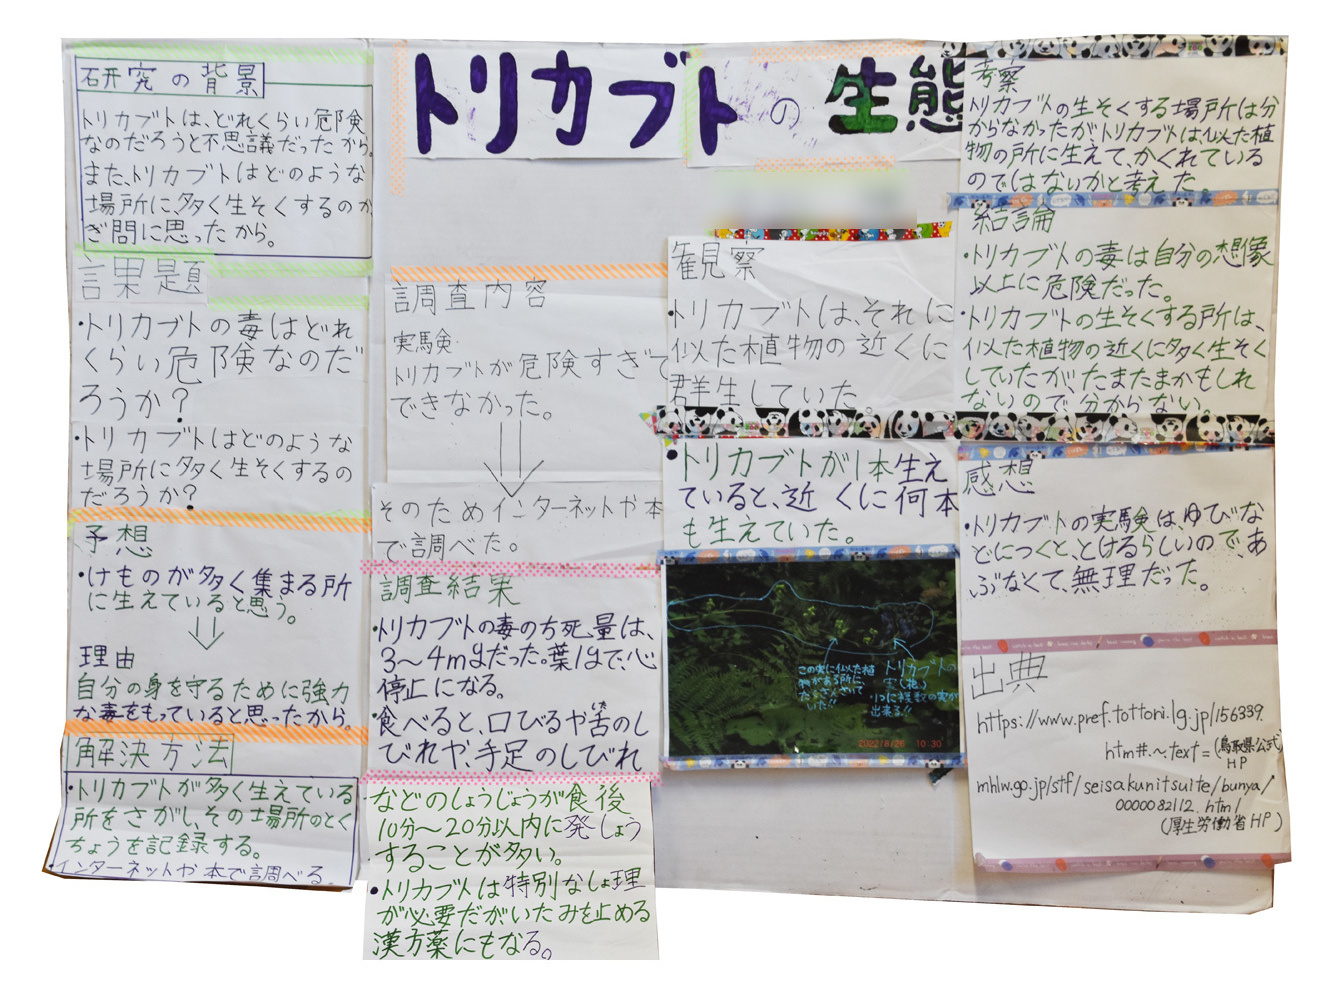 トリカブトの生態
研究の背景
トリカブトは、どれくらい危険
なのだろうと不思議だったから。
また、トリカブトはどのような
場所に、多く生そくするのか
ぎ問に思ったから。
課題
・トリカブトの毒はどれ
くらい危険なのだ
ろうか?
・トリカブトはどのような
場所に多く生そくするの
だろうか?
予想
・けものが多く集まる所
に生えていると思う。
理由
自分の身を守るために強力
な毒をもっていると思ったから。
解決方法
・トリカブトが多く生えている
所をさがし、その場所のとく
ちょうを記録する。
・インターネットや本で調べる
調査内容
実験
トリカブトが危険すぎて
できなかった。
そのためインターネットや本
で調べた。
調査結果
・トリカブトの毒のち死量は、
3〜4mgだった。葉1gで、心
停止になる。
・食べると、口びるや舌のし
びれや、手足のしびれ
などのしょうじょうが食後
10分〜20分以内に発しょう
することが多い。
・トリカブトは特別なしょ理
が必要だが、いたみを止める
漢方薬にもなる。
観察
・トリカブトは、それに
似た植物の近くに
群生していた。
・トリカブトが1本生え
ていると、近くに何本
も生えていた。
この実に似た植
物がある所に、
たくさんさいて
いた!!
トリカブトの
・1つに複数の実が
出来る!!
2022/8/26 10:30
考察
トリカブトの生そくする場所は分
からなかったがトリカブトは似た植
物の所に生えて、かくれている
のではないかと考えた。
結論
・トリカブトの毒は自分の想像
以上に危険だった。
・トリカブトの生そくする所は、
似た植物の近くに多く生そく
していたが、たまたまかもしれ
ないので、分からない。
感想
・トリカブトの実験は、ゆびな
どにつくと、とけるらしいので、あ
ぶなくて、無理だった。
出典
https://www.pref.tottori.lg.jp/156339.
htm#:~:text=(鳥取県公式
HP
mhlw.go.jp/stf/seisakunitsuite/bunya/
0000082112.html
(厚生労働省HP)